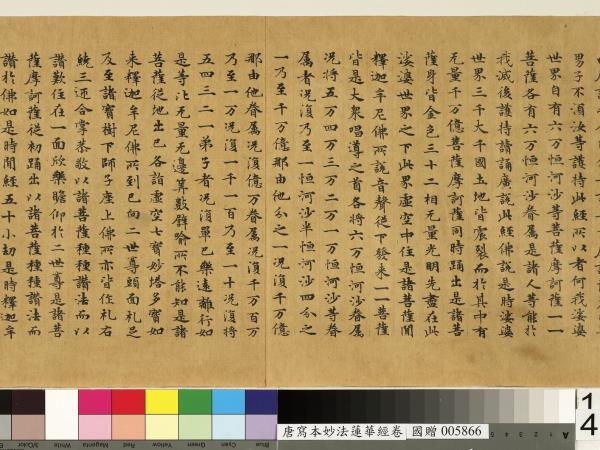 男子不湏汝等護持此經所以者何我娑婆
世界自有六万恒河沙等菩薩摩訶薩一一
菩薩各有六万恒河沙眷属是諸人等能於
我滅後護持讀誦廣說此經佛說是時娑婆
世界三千大千國土地皆震裂而於其中有
无量千万億菩薩摩訶薩同時踊出是諸菩
薩身皆金色三十二相无量光明先盡在此
娑婆世界之下此界虛空中住是諸菩薩聞
釋迦牟尼佛所說音聲從下發來一一菩薩
皆是大衆唱導之首各將六万恒河沙眷属
况將五万四万三万二万一万恒河沙等眷
属者况復乃至一恒河沙半恒河沙四分之
一乃至千万億那由他分之一况復千万億
那由他眷属况復億万眷属况復千万百万
乃至一万况復一千一百乃至一十况復將
五四三二一弟子者况復單己樂遠離行如
是等比无量无邊算數譬喻所不能知是諸
菩薩從地出已各詣虛空七寶妙塔多寶如
來釋迦牟尼佛所到已向二世尊頭面礼足
及至諸寶樹下師子座上佛所亦皆作礼右
繞三迊合掌恭敬以諸菩薩種種讚法而以
讚歎住在一面欣樂瞻仰於二世尊是諸菩
薩摩訶薩從初踊出以諸菩薩種種讚法而
讚於佛如是時閒經五十小劫是時釋迦牟
唐寫本妙法蓮華經卷 國贈 005866
14
3/Color
White
Magenta
Red
Yellow
Green
Cyan
Blue
A